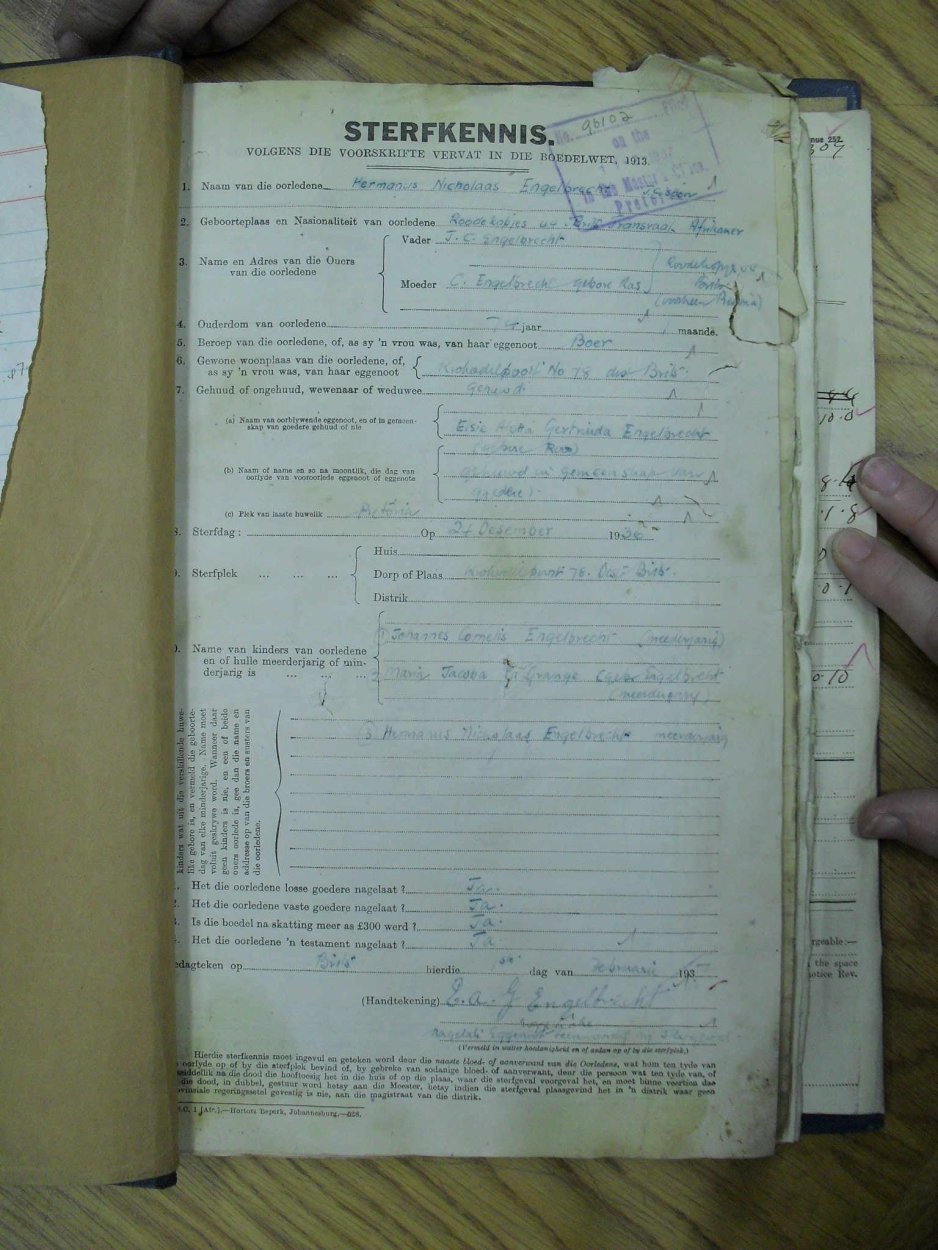 STERFKENNIS.
VOLGENS DIE VOORSKRIFTE VERVAT IN DIE BOEDELWET, 1913.
No. 96102 Filed
on the
in the Master's Office,
Pretoria
1. Naam van die oorledene Hermanus Nicholaas Engelbrecht
2. Geboorteplaas en Nasionaliteit van oorledene Roodekopjes Brits Transvaal Afrikaner
Vader J. C. Engelbrecht
3. Name en Adres van die Ouers
van die oorledene
Brits
Moeder C. Engelbrecht gebore Ras
(voorheen Pretoria)
4. Ouderdom van oorledene 74 jaar maande.
5. Beroep van die oorledene, of, as sy 'n vrou was, van haar eggenoot Boer
6. Gewone woonplaas van die oorledene, of,
as sy 'n vrou was, van haar eggenoot No 78 dist Brits.
7. Gehuud of ongehuud, wewenaar of weduwee Gehuwd
(a) Naam van oorblywende eggenoot, en of in gemeen-
skap van goedere gehuud of nie
Elsie Gertruida Engelbrecht
(gebore Ras)
(b) Naam of name en so na moontlik, die dag van
oorlyde van vooroorlede eggenoot of eggenote
gehuwd in gemeenskap van
goedere).
(c) Plek van laaste huwelik Pretoria
8. Sterfdag: Op 24 Desember 1936
Huis
9. Sterfplek ... ... ... Dorp of Plaas 78. Dist Brits.
Distrik
(1) Johannes Cornelis Engelbrecht (meerderjarig)
Name van kinders van oorledene
en of hulle meerderjarig of min-
derjarig is ... ... ...
2 Maria Jacoba La Grange (gebr Engelbrecht
(meerderjarig)
(3) Hermanus Nicolaas Engelbrecht meerderjarig
kinders wat uit die verskillende huwe-
like gebore is, en vermeld die geboorte-
dag van elke minderjarige. Name moet
voluit geskrywe word. Wanneer daar
geen kinders is nie, en een of beide
ouers oorlede is, gee dan die name en
addresse op van die broers en susters van
die oorledene.
Het die oorledene losse goedere nagelaat? Ja.
Het die oorledene vaste goedere nagelaat? Ja.
Is die boedel na skatting meer as £300 werd? Ja.
Het die oorledene 'n testament nagelaat? Ja.
edagteken op Brits hierdie dag van Februarie 193
(Handtekening) E. A. G Engelbrecht
(Vermeld in watter hoedanigheid en of aldan op of by die sterfplek.)
Hierdie sterfkennis moet ingevul en geteken word deur die naaste bloed- of aanverwant van die Oorledene, wat hom ten tyde van
oorlyde op of by die sterfplek bevind of, by gebreke van sodanige bloed- of aanverwant, deur die persoon wat ten tyde van, of
middellik na die dood die hooftoesig het in die huis of op die plaas, waar die sterfgeval voorgeval het, en moet binne veertien dae
die dood, in dubbel, gestuur word hetsy aan die Meester, hetsy indien die sterfgeval plaasgevind het in 'n distrik waar geen
vinsiale regeringsetel gevestig is nie, aan die magistraat van die distrik.
1 [Afr.].—Hortors Beperk, Johannesburg.—528.
nue 252.
rgeable:—
the space
notice Rev.